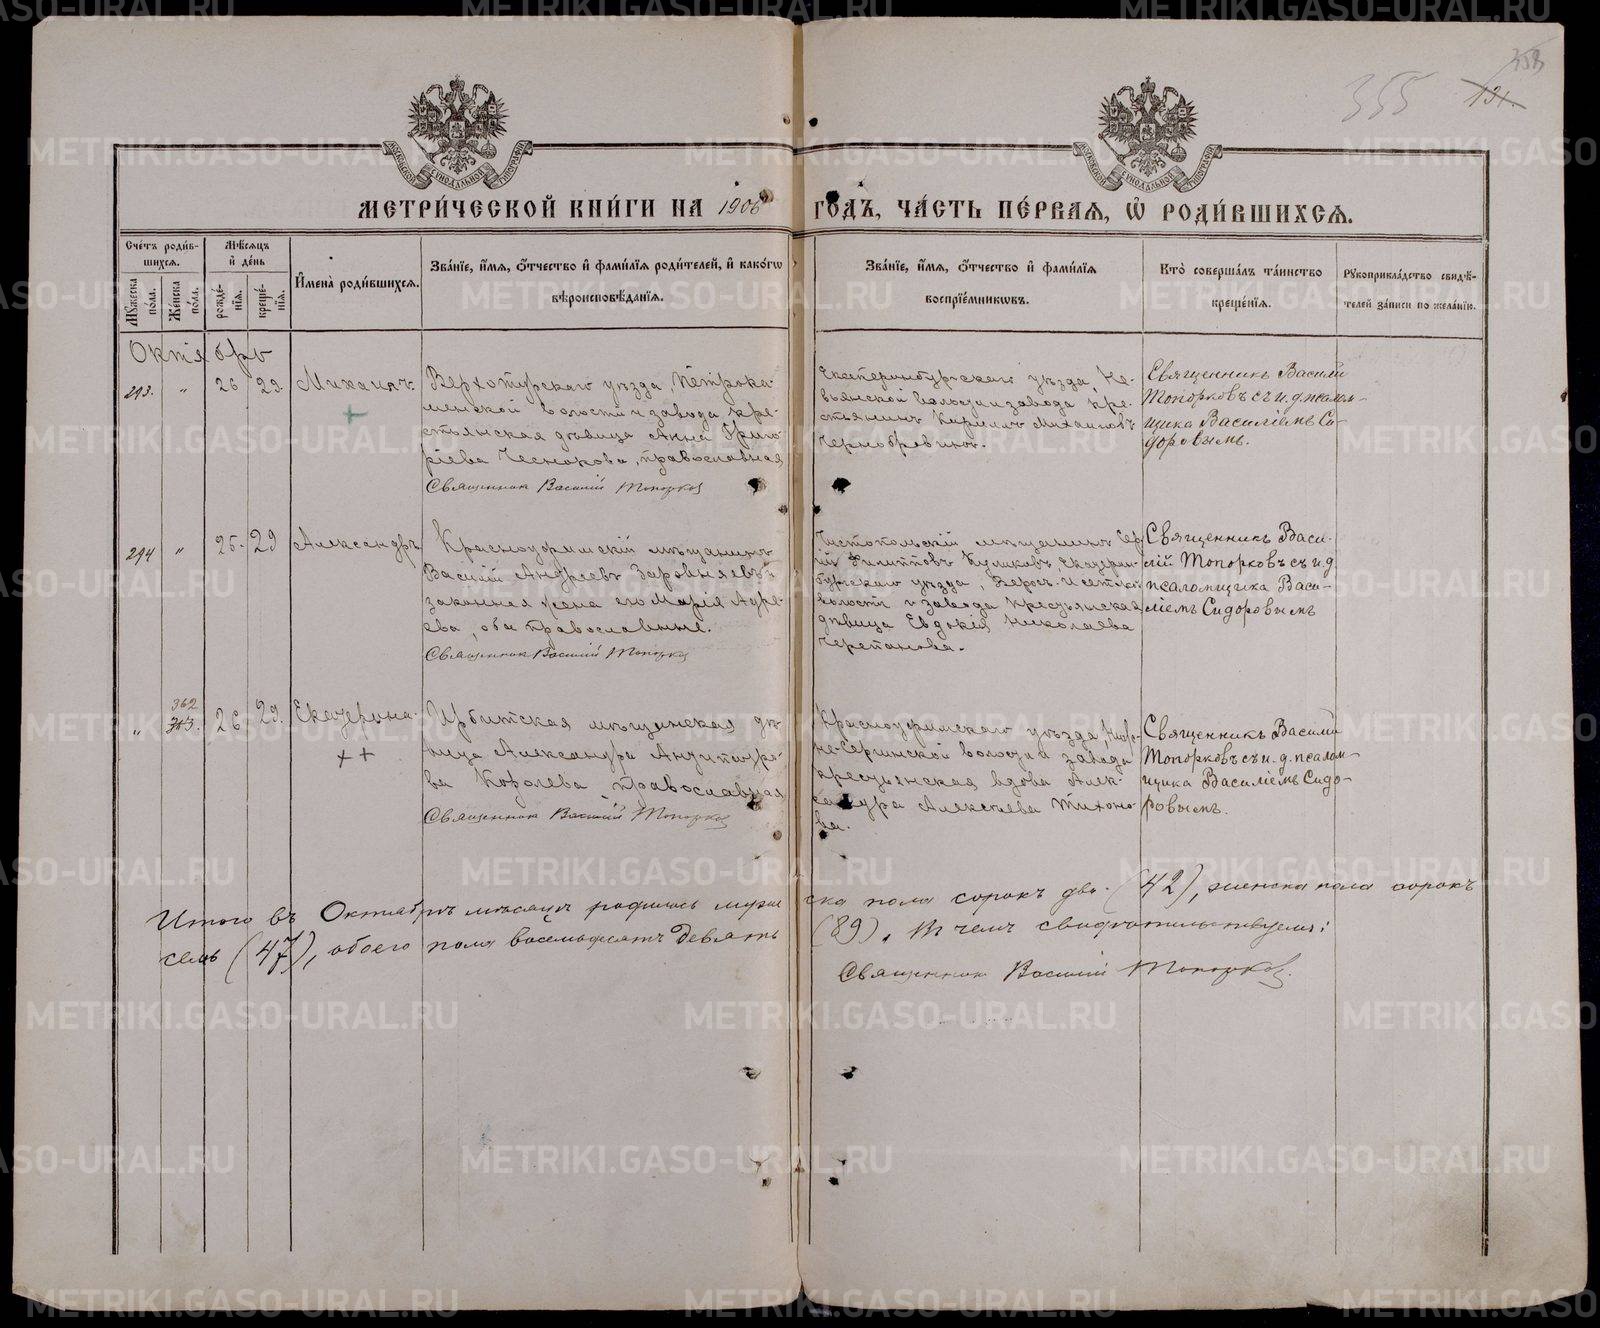 358
355
131.
МОСКОВСКОЙ СѴНОДАЛЬНОЙ ТИПОГРАФІИ
МОСКОВСКОЙ СѴНОДАЛЬНОЙ ТИПОГРАФІИ
МЕТРИ́ЧЕСКОЙ КНИ́ГИ НА 1906 ГОДЪ, ЧА́СТЬ ПЕ́РВАЯ, Ѡ҆ РОДИ́ВШИХСЯ.
Сче́тъ роди́в-
шихся.
Мѣ́сяцъ
и҆ де́нь
Мꙋ́жеска
по́ла.
Же́нска
по́ла.
рожде́-
нїя.
креще́-
нїя.
И҆мена̀ роди́вшихся.
Зва́нїе, и҆́мя, ѻ҆́тчество и҆ фами́лїя роди́телей, и҆ како́гѡ
вѣроисповѣ́данїя.
Зва́нїе, и҆́мя, ѻ҆́тчество и҆ фами́лїя
воспрїе́мникѡвъ.
Кто̀ соверша́лъ та́инство
креще́нїя.
Рꙋкоприкла́дство свидѣ́-
телей за́писи по жела́нїю.
Октябрь
293. „ 26 29. Михаилъ.
Верхотурскаго уѣзда, Петрока-
менской волости и завода кре-
стьянская дѣвица Анна Григо-
ріева Чеснокова, православная
Священник Василий Топорков
Екатеринбургскаго уѣзда, Не-
вьянской волости и завода кре-
стьянинъ Кириллъ Михаиловъ
Чернобровинъ.
Священникъ Василій
Топорковъ съ и. д. псалом-
щика Василіемъ Си-
доровымъ.
294 „ 25. 29 Александръ.
Красноуфимскій мѣщанинъ
Василій Андреевъ Заровняевъ и
законная жена его Марія Андре-
ева, оба православные.
Священник Василий Топорков
Чистопольскій мѣщанинъ Сер
гій Филипповъ Куликовъ, Екатерин
бургскаго уѣзда, Верхъ-Исетской
волости и завода крестьянская
дѣвица Евдокія Николаева
Черепанова.
Священникъ Васи-
лій Топорковъ съ и. д.
псаломщика Васи-
ліемъ Сидоровымъ
362
„ 363. 26 29. Екатерина.
Ирбитская мѣщанская дѣ-
вица Александра
ва Королева, православная
Священник Василий Топорков
Красноуфимскаго уѣзда, Нижне-
не-Сергинской волости и завода
крестьянская вдова Алек-
сандра Алексѣева Тихоно-
ва.
Священникъ Василій
Топорковъ съ и. д. псалом-
щика Василіемъ Сидо-
ровымъ.
Итого въ Октябрѣ мѣсяцѣ родилось мужеска пола сорокъ два (42), женска пола сорокъ
семь (47), обоего пола восемьдесятъ девять (89). В чемъ свидѣтельствуемъ:
Священник Василий Топорков.